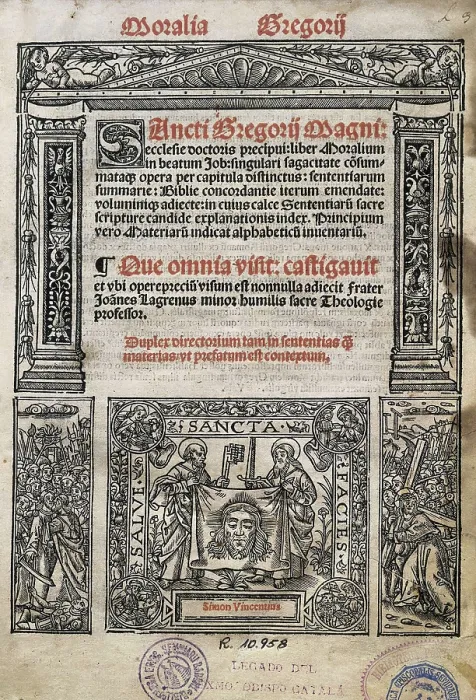 Moralia Gregorij
SAncti Gregorij Magni:
ecclesie doctoris precipui: liber Moralium
in beatum Job: singulari sagacitate cōsum-
mataqꝫ opera per capitula distinctus: sententiarum
summarie: Biblie concordantie iterum emendate:
voluminiqꝫ adiecte: in cuius calce Sententiarū sacre
scripture candide explanationis index. Principium
vero Materiarū indicat alphabeticū inuentariū.
¶ Que omnia visit: castigauit
et vbi operepreciū visum est nonnulla adiecit frater
Joānes Lagrenus minor humilis sacre Theologie
professor.
Duplex directorium tam in sententias q̄
materias vt prefatum est contextum.
SALVE
SANCTA
FACIES
Simon Vincentius
R. 10.958
LEGADO DEL
EXMO. OBISPO CATALÁ